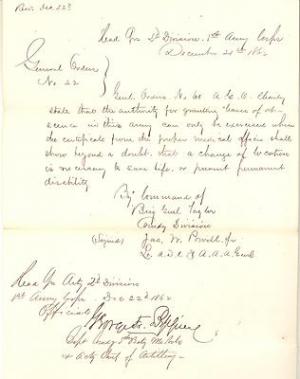 Rec. Dec 22d
Head Qrs 2d Division 1st Army Corps
December 21st 1862
General Orders
No. 22
Genl. Orders No. 60 A of C
state that the authority for granting leaves of ab-
sence in this army can only be exercised when
the certificate from the proper medical officer shall
show beyond a doubt, that a change of location
is necessary to save life, or prevent permanent
disability
By Command of
Brig Genl Taylor
Comdg Division
(Signed) Jas. W. Powell Jr
A.A.A. Genl
Head Qrs Arty 2d Division
1st Army Corps Dec 22d 1862
Official
Capt Comdg 5th Baty Me Vols
& Actg Chief of Artillery